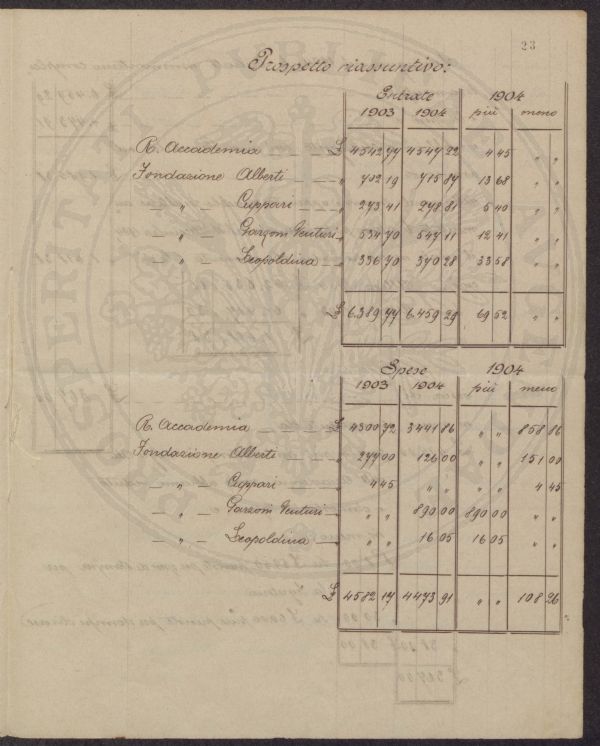 23
Prospetto riassuntivo:
Entrate 1904
1903 1904 più meno
R. Accademia — — — £ 4542 77 4547 22 4 45 " "
Fondazione Alberti — — — " 702 19 715 87 13 68 " "
— " — Cuppari — — — " 273 41 278 81 5 40 " "
— " — Garzoni Venturi — " 534 70 547 11 12 41 " "
— " — Leopoldina — — " 336 70 370 28 33 58 " "
£ 6.389 77 6.459 29 69 52 " "
Spese 1904
1903 1904 più meno
R. Accademia — — — £ 4300 72 3441 86 " " 858 86
Fondazione Alberti — — — " 277 00 126 00 " " 151 00
— " — Cuppari — — — " 4 45 " " " " 4 45
— " — Garzoni Venturi — " " " 890 00 890 00 " "
— " — Leopoldina — " " " 16 05 16 05 " "
£ 4582 17 4473 91 " " 108 26